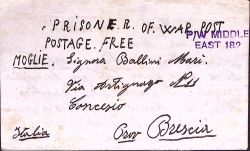 PRISONER. OF. WAR. POST
POSTAGE. FREE
P/W MIDDLE
EAST 182
MOGLIE. Signora Ballini Mari.
Via Artignago
Concesio
Italia Prov Brescia